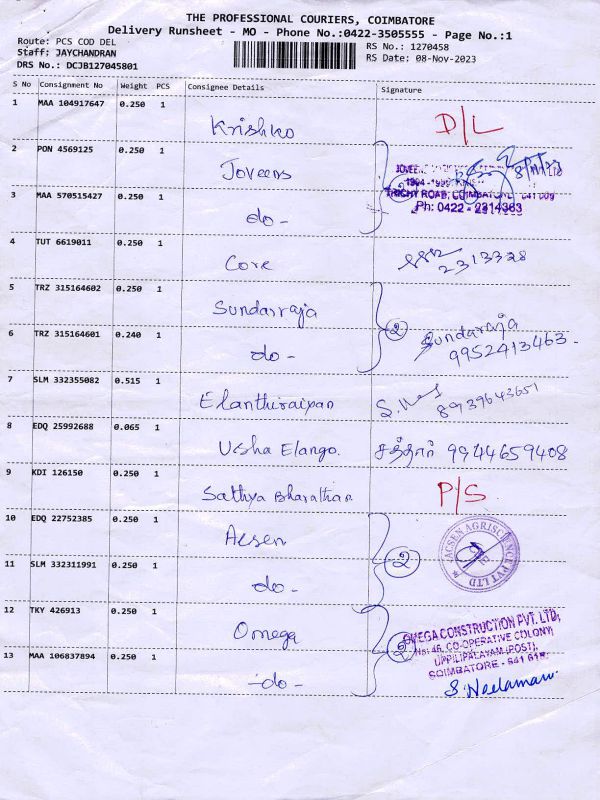 THE PROFESSIONAL COURIERS, COIMBATORE
Delivery Runsheet - MO - Phone No.:0422-3505555 - Page No.:1
Route: PCS COD DEL
RS No.: 1270458
Staff: JAYCHANDRAN
RS Date: 08-Nov-2023
DRS No.: DCJB127045801
S No Consignment No Weight PCS Consignee Details Signature
1 MAA 104917647 0.250 1 Krishko D/L
2 PON 4569125 0.250 1 Joveens
3 MAA 570515427 0.250 1 do-
TRICHY ROAD, COIMBATORE - 641 009
Ph: 0422 - 2314363
4 TUT 6619011 0.250 1 Core 2313328
5 TRZ 315164602 0.250 1 Sundarraja
2 Sundaraja
6 TRZ 315164601 0.240 1 do- 9952413463-
7 SLM 332355082 0.515 1 Elanthiraiyan 8939643651
8 EDQ 25992688 0.065 1 Usha Elango. சத்தார் 9944659408
9 KDI 126150 0.250 1 Sathya Bharathan P/S
10 EDQ 22752385 0.250 1 Acsen
2 ACSEN AGRISCIENCE PVT LTD
11 SLM 332311991 0.250 1 do-
12 TKY 426913 0.250 1 Omega
2 OMEGA CONSTRUCTION PVT. LTD,
No: 46, CO-OPERATIVE COLONY,
UPPILIPALAYAM (POST),
COIMBATORE - 641 015.
13 MAA 106837894 0.250 1 -do-